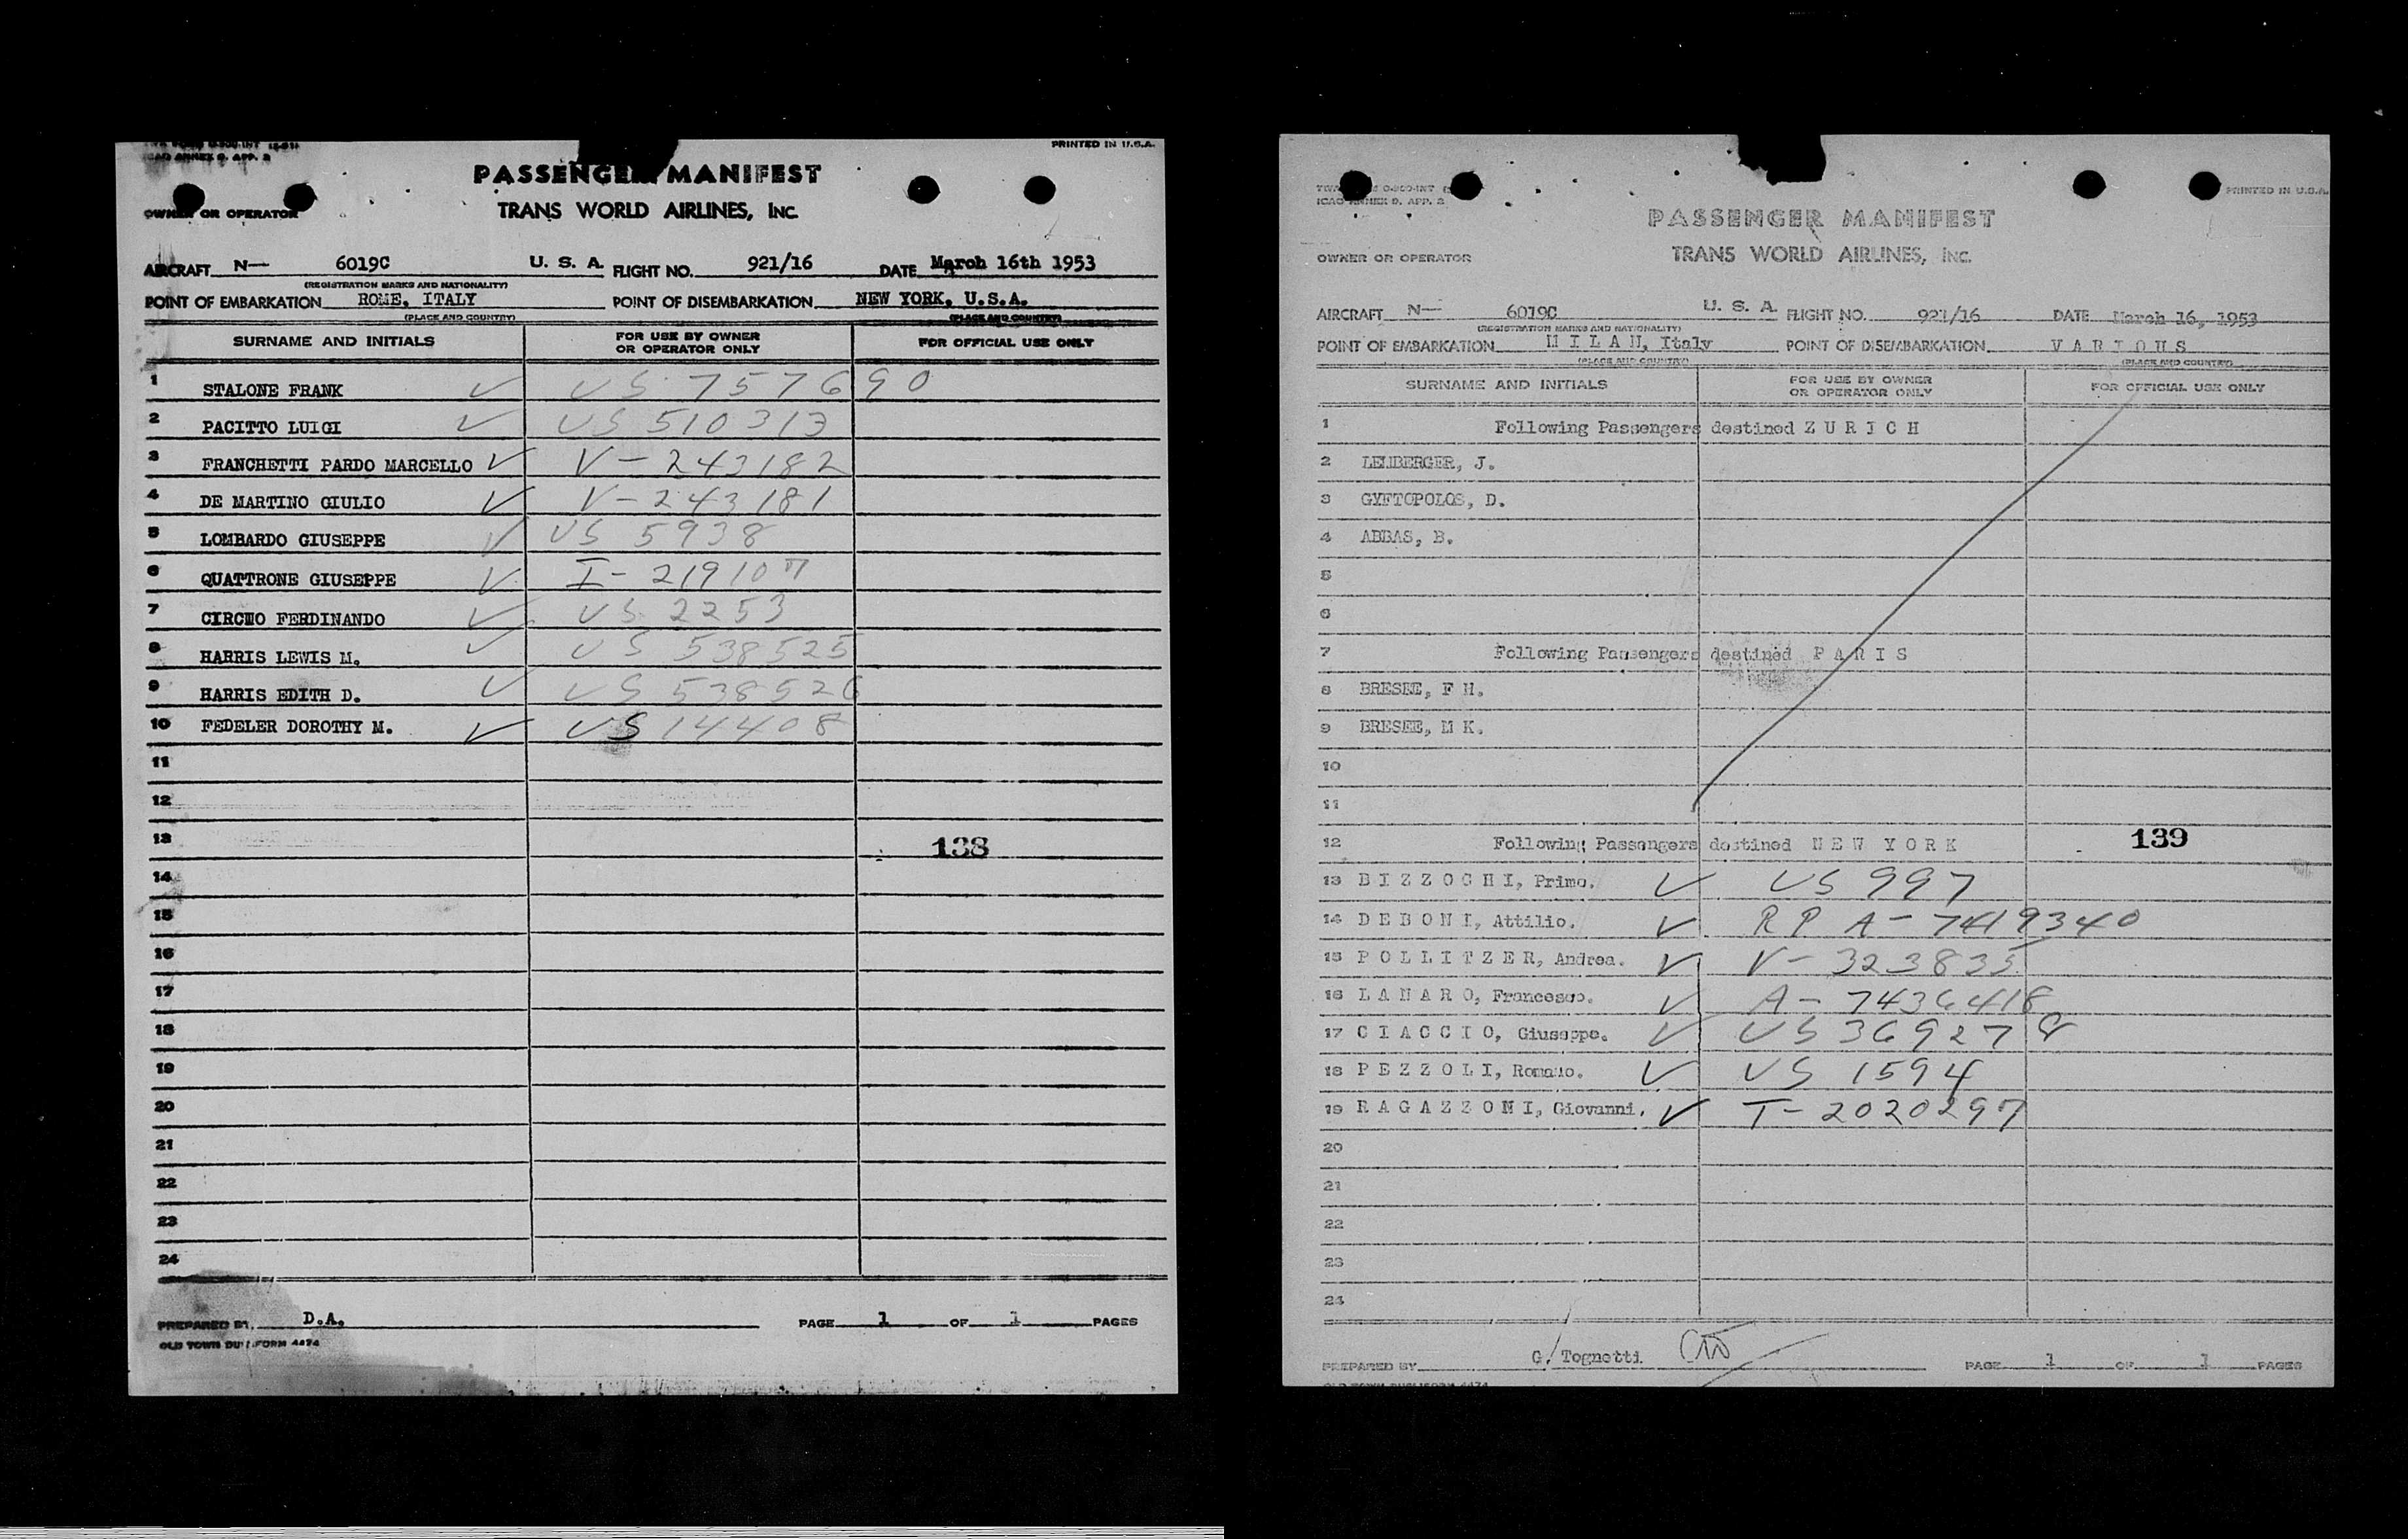 ICAO ANNEX 9, APP. 2
PRINTED IN U.S.A.
PASSENGER MANIFEST
OWNER OR OPERATOR
TRANS WORLD AIRLINES, INC.
AIRCRAFT N— 6019C U. S. A. FLIGHT NO. 921/16 DATE March 16th 1953
(REGISTRATION MARKS AND NATIONALITY)
POINT OF EMBARKATION ROME, ITALY POINT OF DISEMBARKATION NEW YORK, U.S.A.
(PLACE AND COUNTRY) (PLACE AND COUNTRY)
SURNAME AND INITIALS FOR USE BY OWNER OR OPERATOR ONLY FOR OFFICIAL USE ONLY
1 STALONE FRANK ✓ US 757690
2 PACITTO LUIGI ✓ US 510313
3 FRANCHETTI PARDO MARCELLO ✓ V-243182
4 DE MARTINO GIULIO ✓ V-243181
5 LOMBARDO GIUSEPPE ✓ US 5938
6 QUATTRONE GIUSEPPE ✓ I-219107
7 FERDINANDO ✓ US 2253
8 HARRIS LEWIS M. ✓ US 538525
9 HARRIS EDITH D. ✓ US 538526
10 FEDELER DOROTHY M. ✓ US 14408
11
12
13 138
14
15
16
17
18
19
20
21
22
23
24
PREPARED BY D.A. PAGE 1 OF 1 PAGES
OLD TOWN FORM 4474
ICAO ANNEX 9, APP. 2
PRINTED IN U.S.A.
PASSENGER MANIFEST
TRANS WORLD AIRLINES, INC.
OWNER OR OPERATOR
AIRCRAFT N— 6019C U. S. A. FLIGHT NO. 921/16 DATE March 16, 1953
(REGISTRATION MARKS AND NATIONALITY)
POINT OF EMBARKATION M I L A N, Italy POINT OF DISEMBARKATION V A R I O U S
(PLACE AND COUNTRY) (PLACE AND COUNTRY)
SURNAME AND INITIALS FOR USE BY OWNER OR OPERATOR ONLY FOR OFFICIAL USE ONLY
1 Following Passengers destined Z U R I C H
2 LEMBERGER, J.
3 GYFTOPOLOS, D.
4 ABBAS, B.
5
6
7 Following Passengers destined P A R I S
8 BRESEE, F H.
9 BRESEE, M K.
10
11
12 Following Passengers destined N E W Y O R K 139
13 B I Z Z O C H I, Primo. ✓ US 997
14 D E B O N I, Attilio. ✓ R P A-7419340
15 P O L L I T Z E R, Andrea. ✓ V-323835
16 L A N A R O, Francesco. ✓ A-7436418
17 C I A C C I O, Giuseppe. ✓ US 369278
18 P E Z Z O L I, Romano. ✓ US 1594
19 R A G A Z Z O N I, Giovanni. ✓ T-2020297
20
21
22
23
24
PREPARED BY G. Tognetti PAGE 1 OF 1 PAGES